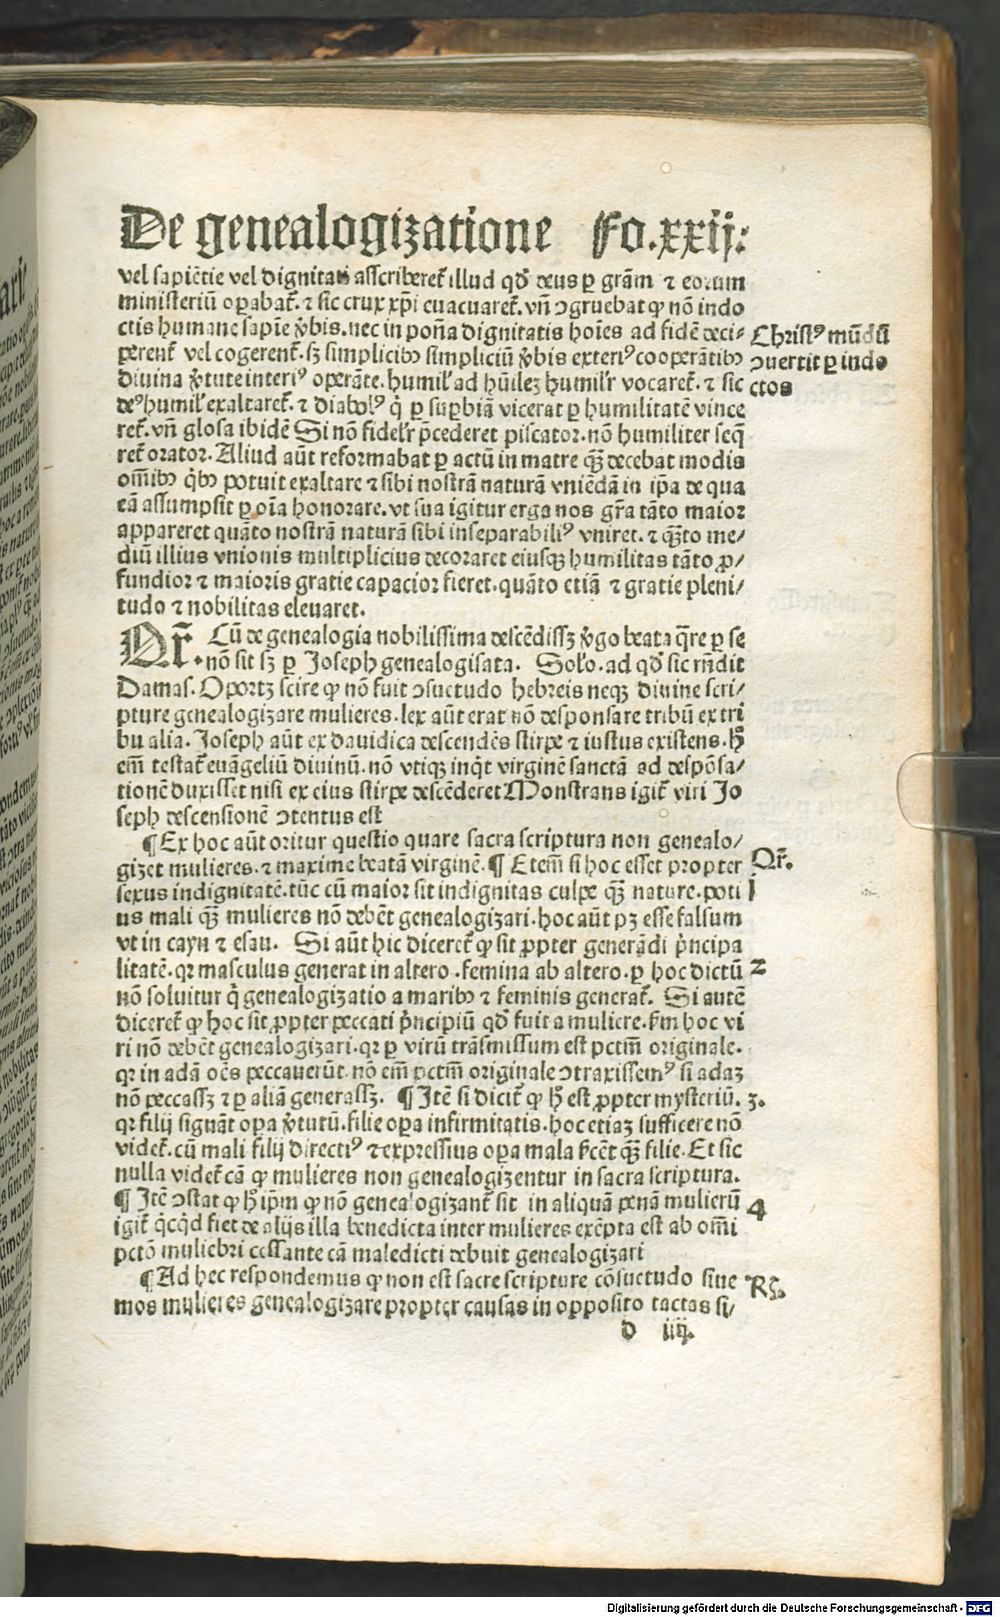 De genealogizatione Fo.xxij:
vel sapiētie vel dignitati asscriberet᷑ illud qd̕ deus ꝑ grām ⁊ eorum
ministeriū oꝑabat᷑. ⁊ sic crux xp̄i euacuaret᷑. vn̄ ↄgruebat ꝙ nō indo
ctis humane sapīe v̕bis. nec in poña dignitatis hoīes ad fidē deci-
perent᷑ vel cogerent᷑. sꝫ simplicibꝰ simpliciū v̕bis exteriꝰ cooperātibꝰ
diuina v̕tute interiꝰ operāte. humil̕ ad hūilez humilr̕ vocaret᷑. ⁊ sic
deꝰ humil̕ exaltaret᷑. ⁊ diabolꝰ q̇ ꝑ suꝑbiā vicerat ꝑ humilitatē vince
ret᷑. vn̄ glosa ibidē Si nō fidelr̕ p̄cederet piscator. nō humiliter seq̄
ret᷑ orator. Aliud aūt reformabat ꝑ actū in matre quaꝫ decebat modis
om̄ibꝰ q̇bꝰ potuit exaltare ⁊ sibi nostrā naturā vniēdā in ip̄a de qua
eā assumpsit ꝑ oīa honorare. vt sua igitur erga nos gr̄a tāto maior
appareret quāto nostrā naturā sibi inseparabiliꝰ vniret. ⁊ quāto me/
diū illius vnionis multiplicius decoraret eiusqꝫ humilitas tāto ꝓ/
fundior ⁊ maioris gratie capacior fieret. quāto etiā ⁊ gratie pleni/
tudo ⁊ nobilitas eleuaret.
Qr̄. Cū de genealogia nobilissima descēdissꝫ v̕go beata q̄re ꝑ se
nō sit sꝫ ꝑ Joseph genealogisata. Solo. ad qd̕ sic rn̄dit
Damas. Oportꝫ scire ꝙ nō fuit ↄsuetudo hebreis neqꝫ diuine scri/
pture genealogizare mulieres. lex aūt erat nō desponsare tribū ex tri
bu alia. Joseph aūt ex dauidica descendēs stirpe ⁊ iustus existens. h̄
em̄ testat᷑ euāgeliū diuinū. nō vtiqꝫ inqt̕ virginē sanctā ad despōsa/
tionē duxisset nisi ex eius stirpe descēderet Monstrans igit᷑ viri Jo
seph descensionē ↄtentus est
¶ Ex hoc aūt oritur questio quare sacra scriptura non genealo/
gizet mulieres. ⁊ maxime beatā virginē. ¶ Etem̄ si hoc esset propter
sexus indignitatē. tūc cū maior sit indignitas culpe quaꝫ nature. poti
us mali quaꝫ mulieres nō debēt genealogizari. hoc aūt pꝫ esse falsum
vt in cayn ⁊ esau. Si aūt hic diceret᷑ ꝙ sit ꝓpter generādi pn̕cipa
litatē. qꝛ masculus generat in altero. femina ab altero. ꝑ hoc dictū
nō soluitur q̇ genealogizatio a maribꝰ ⁊ feminis generat᷑. Si autē
diceret᷑ ꝙ hoc sit ꝓpter peccati pn̕cipiū qd̕ fuit a muliere. fm̄ hoc vi
ri nō debēt genealogizari. qꝛ ꝑ virū trāsmissum est pctm̄ originale.
qꝛ in adā oēs peccauerūt. nō em̄ pctm̄ originale ↄtraxissemꝰ si adaꝫ
nō peccassꝫ ⁊ ꝑ aliā generassꝫ. ¶ Itē si dicit᷑ ꝙ h̄ est ꝓpter mysteriū.
qꝛ filij signāt oꝑa v̕tutū. filie oꝑa infirmitatis. hoc etiaꝫ sufficere nō
videt᷑. cū mali filij directiꝰ ⁊ expressius oꝑa mala fc̄ēt quaꝫ filie. Et sic
nulla videt᷑ cā ꝙ mulieres non genealogizentur in sacra scriptura.
¶ Itē ↄstat ꝙ h̄ ip̄m ꝙ nō genealogizant᷑ sit in aliquā penā mulierū
igit᷑ q̇cq̇d fiet de alijs illa benedicta inter mulieres exēpta est ab om̄i
pctō muliebri cessante cā maledicti debuit genealogizari
¶ Ad hec respondemus ꝙ non est sacre scripture cōsuetudo siue
mos mulieres genealogizare propter causas in opposito tactas si/
d iiij.
Christꝰ mūdū
ↄuertit ꝑ indo
ctos
Qr̄.
1
2
3.
4
Rꝫ.
Digitalisierung gefördert durch die Deutsche Forschungsgemeinschaft - DFG